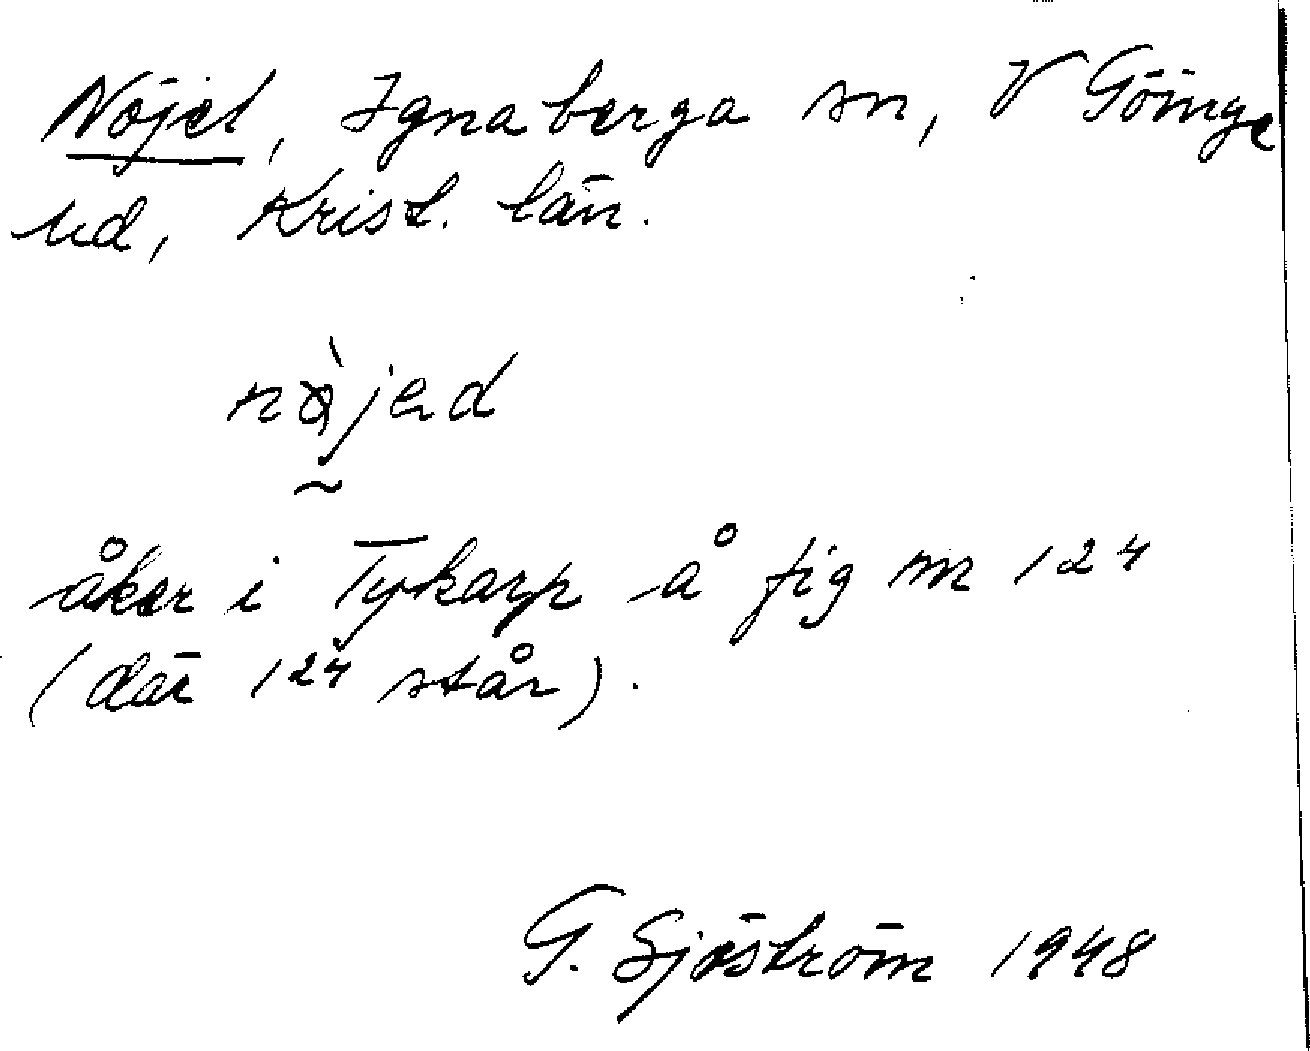 Nöjet, Ignaberga sn, V Göinge
hd, Krist. län.
nø̀jed
åker i Tykarp å fig nr 124
(där 124 står).
G. Sjöström 1948